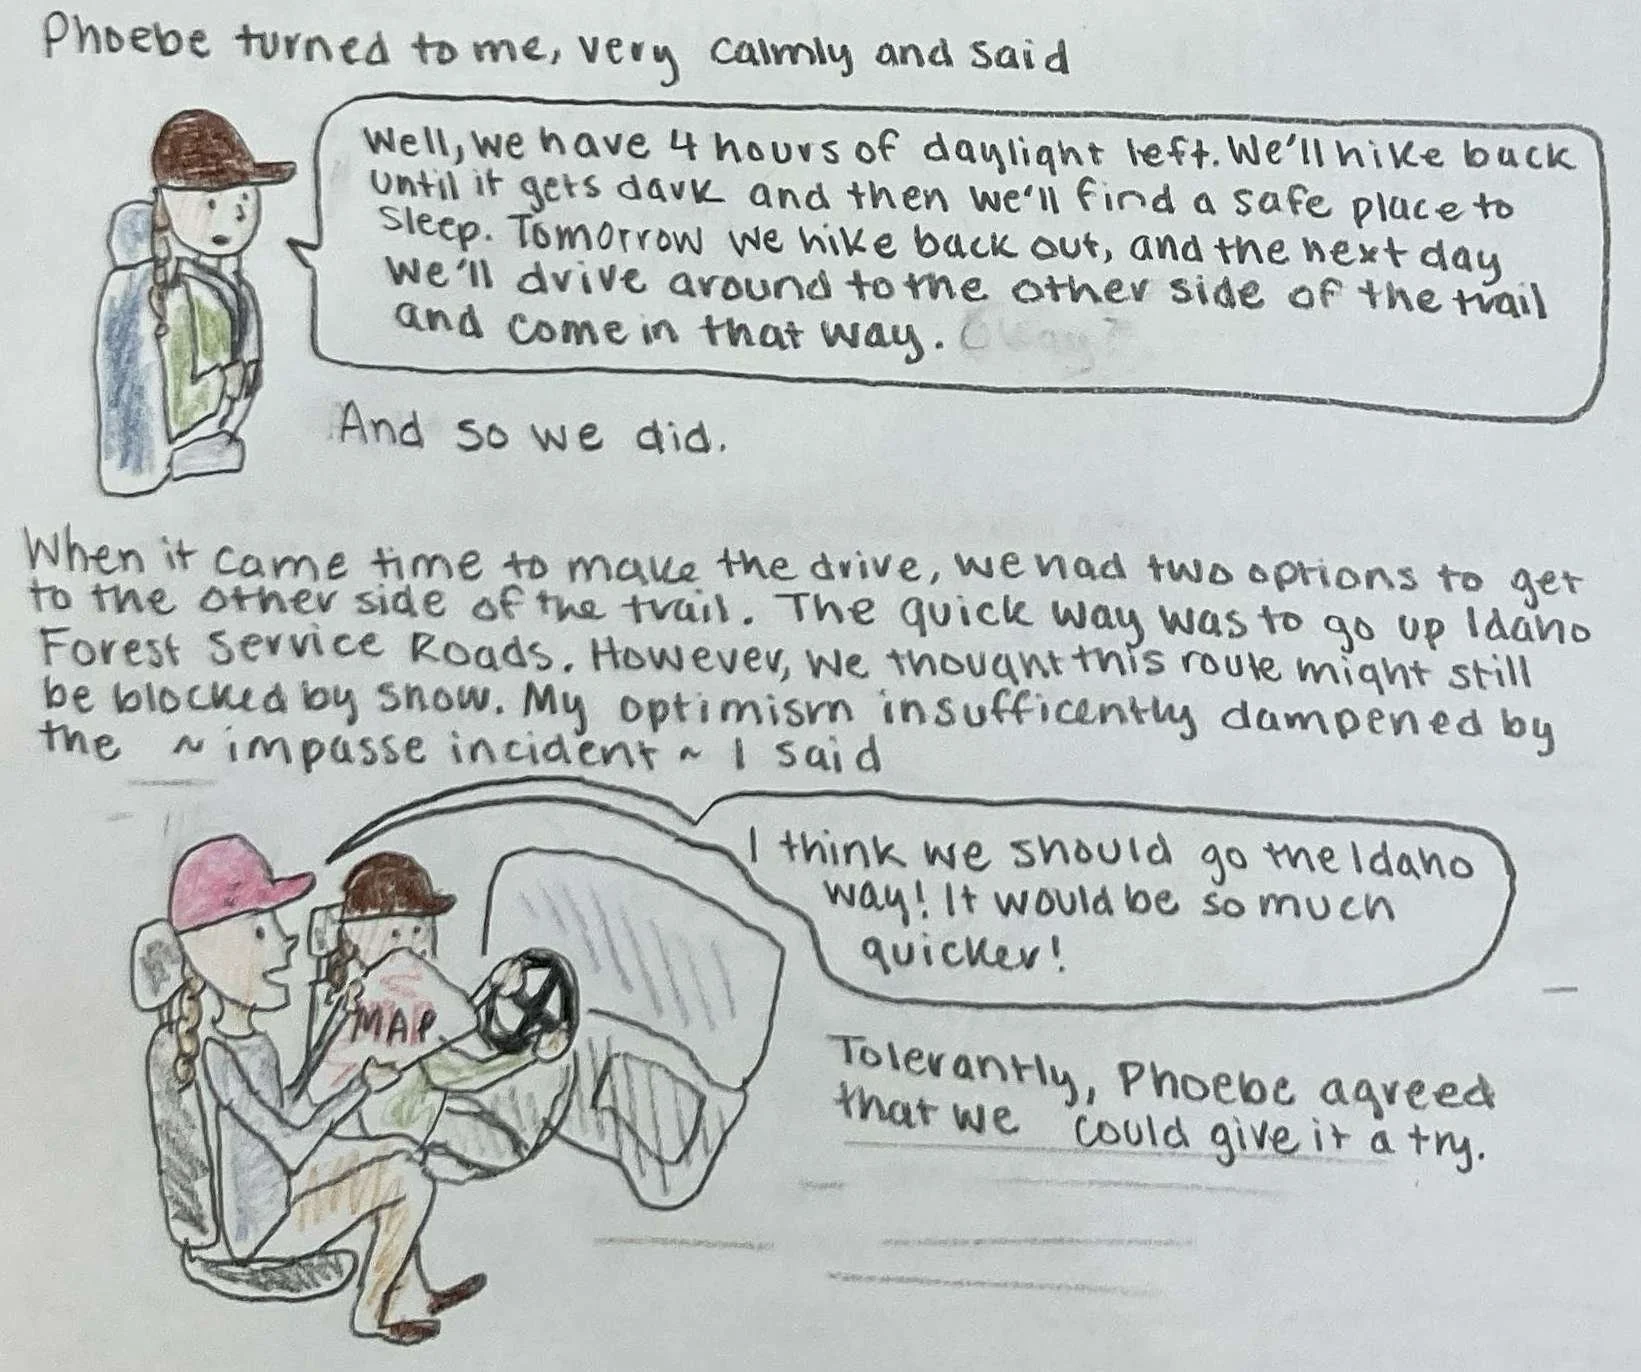 Phoebe turned to me, very calmly and said
Well, we have 4 hours of daylight left. We'll hike back
until it gets dark and then we'll find a safe place to
sleep. Tomorrow we hike back out, and the next day
we'll drive around to the other side of the trail
and come in that way. Okay?
And so we did.
When it came time to make the drive, we had two options to get
to the other side of the trail. The quick way was to go up Idaho
Forest Service Roads. However, we thought this route might still
be blocked by snow. My optimism insufficently dampened by
the ~ impasse incident ~ I said
I think we should go the Idaho
way! It would be so much
quicker!
MAP
Tolerantly, Phoebe agreed
that we could give it a try.